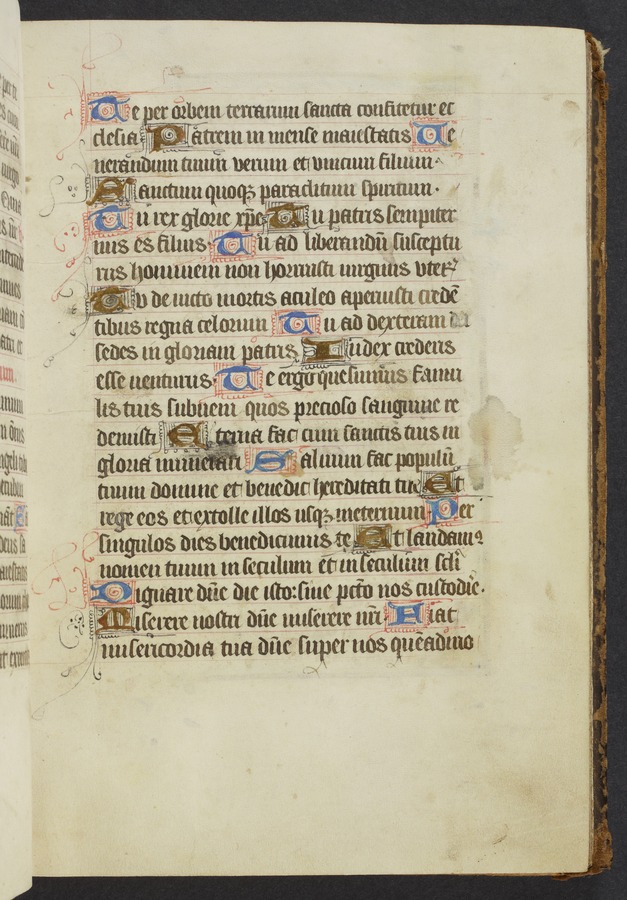 Te per orbem terrarum sancta confitetur ec
clesia Patrem inmense maiestatis Ve
nerandum tuum verum et vnicum filium.
Sanctum quoqꝫ paraclitum spiritum.
Tu rex glorie xp̄e Tu patris sempiter
nus es filius Tu ad liberandū susceptu
rus hominem non horruisti uirginis vteꝝ
Tv deuicto mortis aculeo aperuisti credē
tibus regna celorum Tu ad dexteram dei
sedes in gloriam patris Iudex crederis
esse uenturus Te ergo quesumus famu
lis tuis subueni quos precioso sanguine re
demisti Eterna fac cum sanctis tuis in
gloria munerari Saluum fac populū
tuum domine et benedic hereditati tue Et
rege eos et extolle illos usqꝫ ineternum Per
singulos dies benedicimus te Et laudamꝰ
nomen tuum in seculum et in seculum scl̄i
Dignare dn̄e die isto: sine pct̄o nos custodie.
Miserere nostri dn̄e miserere nr̄i Fiat
misericordia tua dn̄e super nos quēadmo